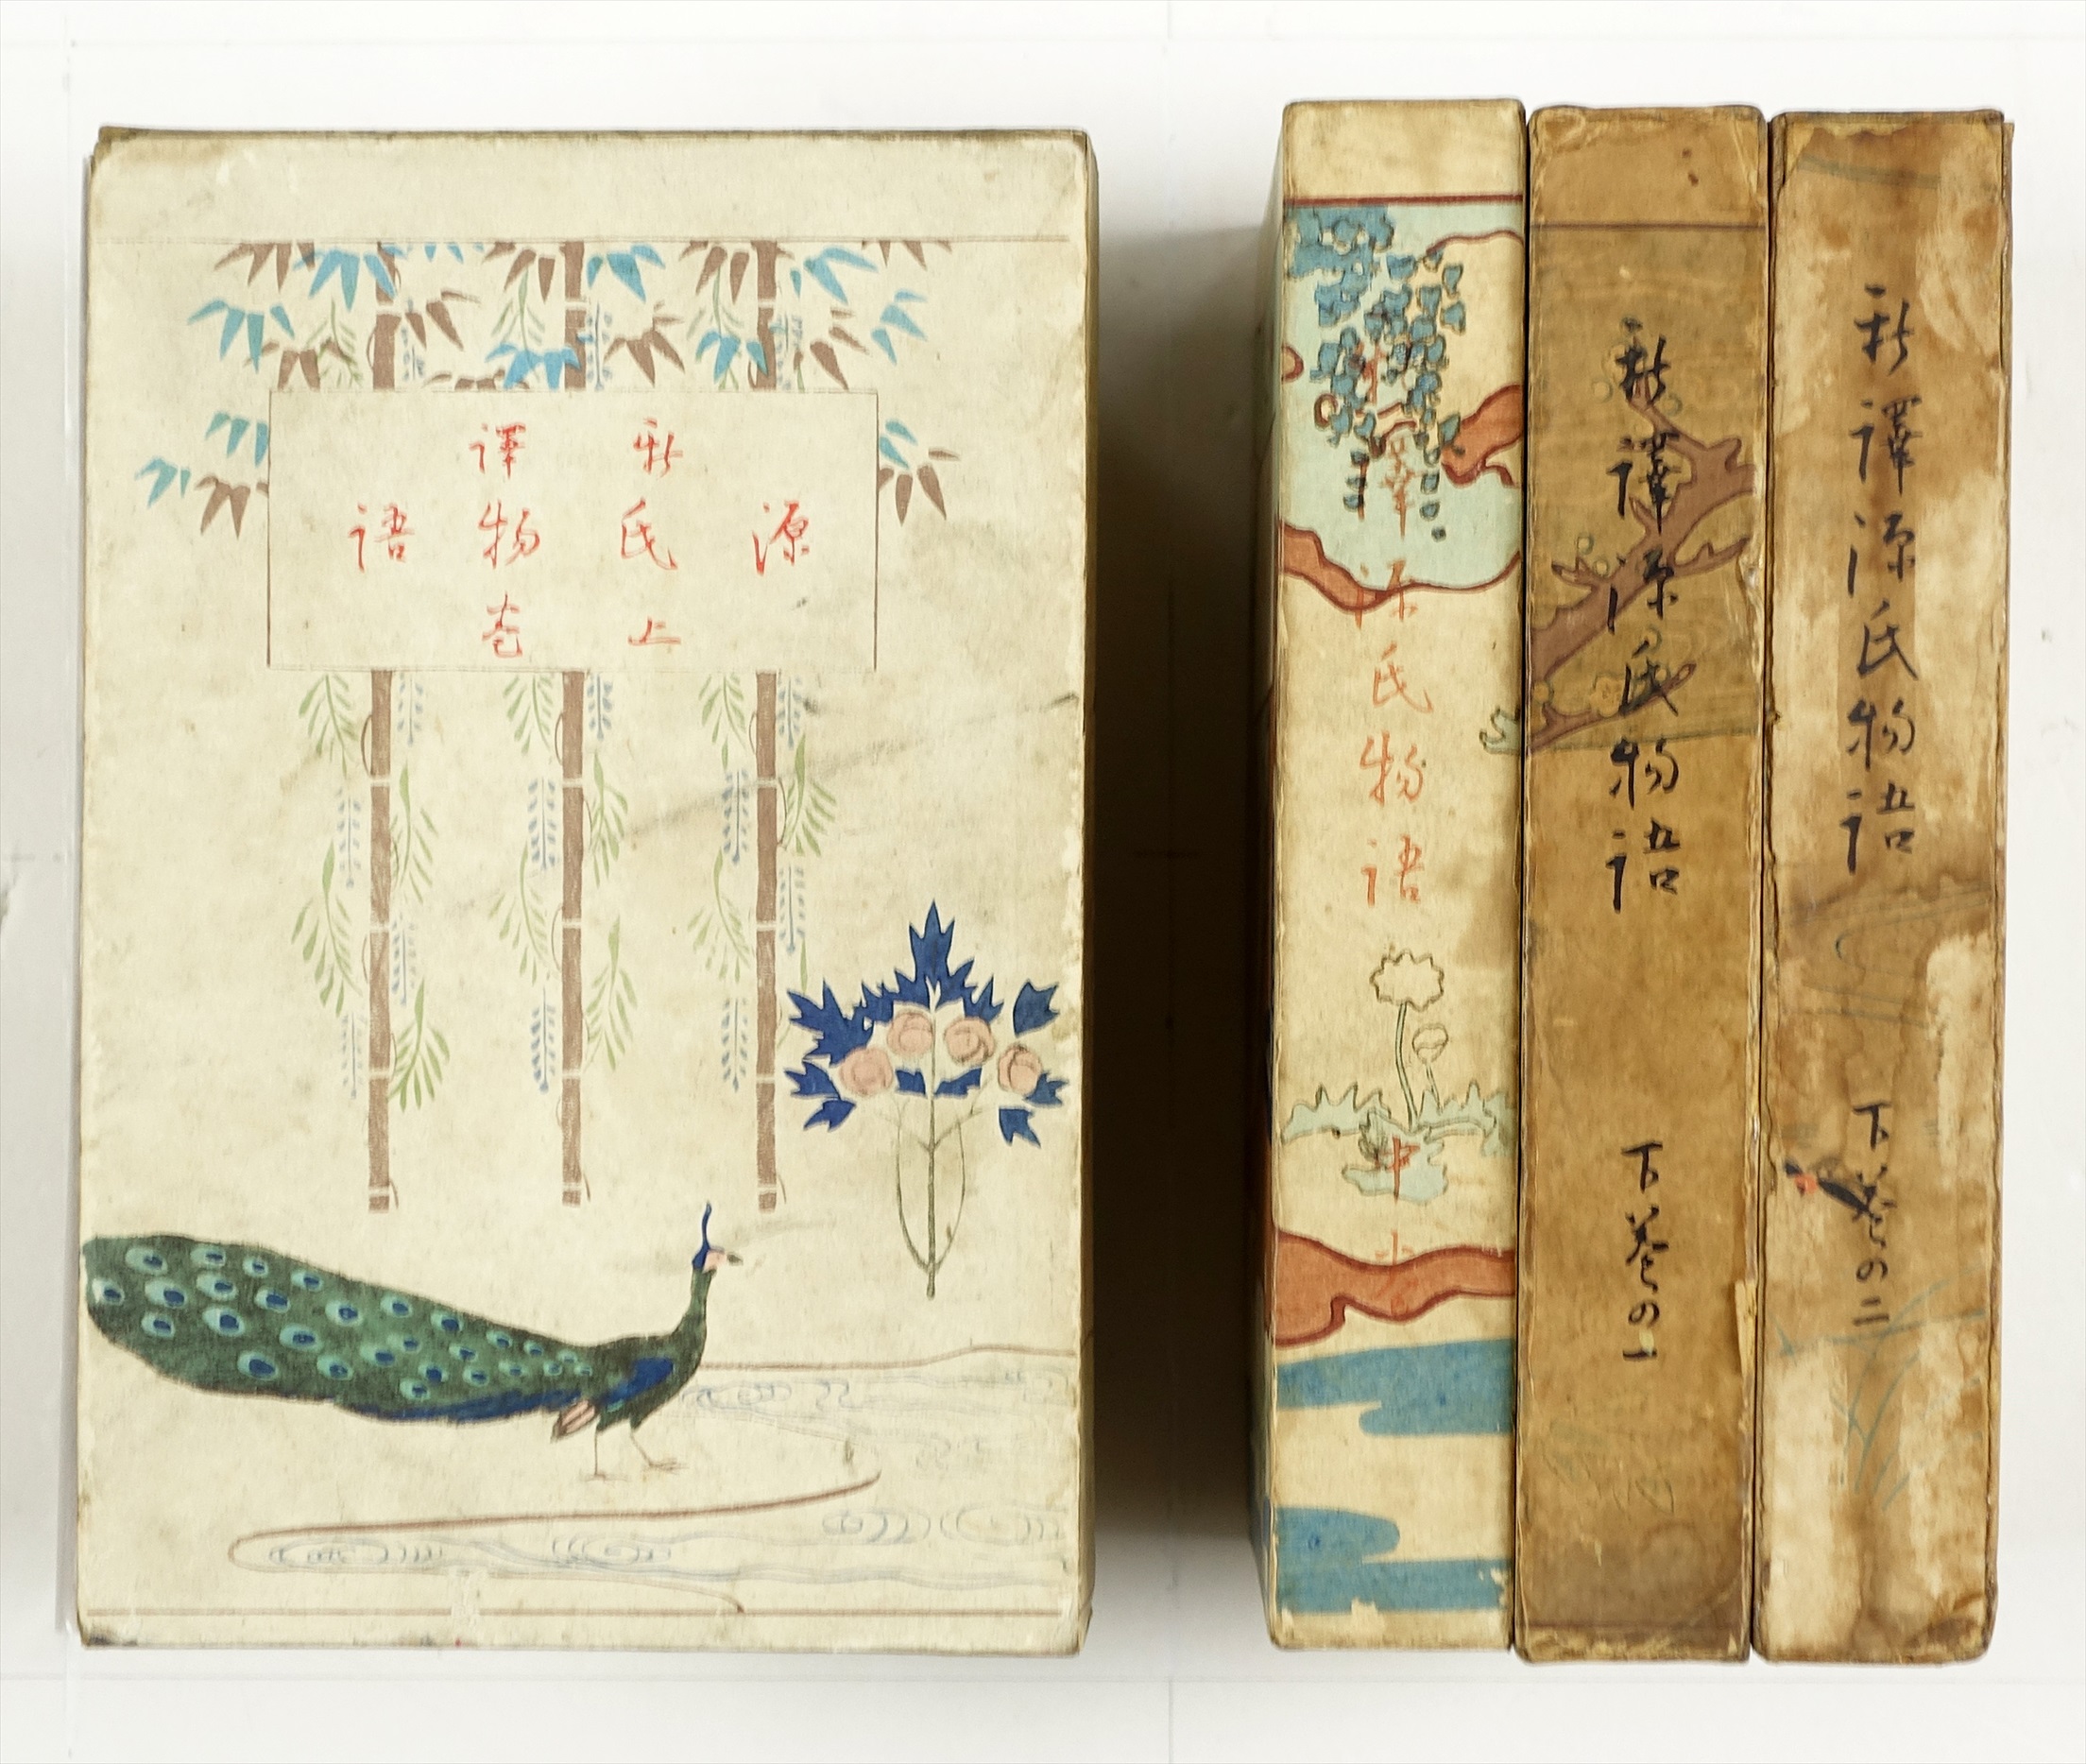 新譯
源氏物語
上巻
新譯源氏物語
中
新譯源氏物語
下巻の一
新譯源氏物語
下巻の二